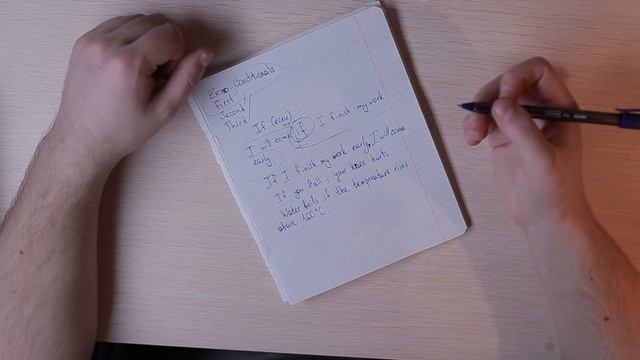 Zero-Conditionals
First
Second
Third
If (если)
I will come if I finish my work
early
If I finish my work early, I will come
If you fall, your knee hurts
Water boils if the temperature rises
above 100°C.